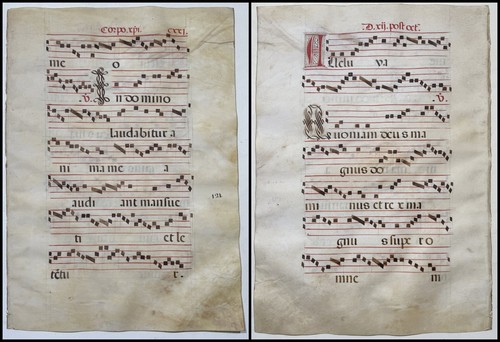 Corpo. xpi. cxxj.
me o
℣. In domino
laudabitur a
ni ma me a
audi ant mansue
ti et le
tētu r.
121
D. xij. post oct.
Alleluva
℣.
Quoniam deus ma
gnus do
mi nus et re x ma
gnu s supe r o
mne m